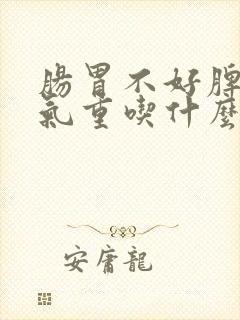 腸胃不好脾
氣重喫什麼
安庸龍